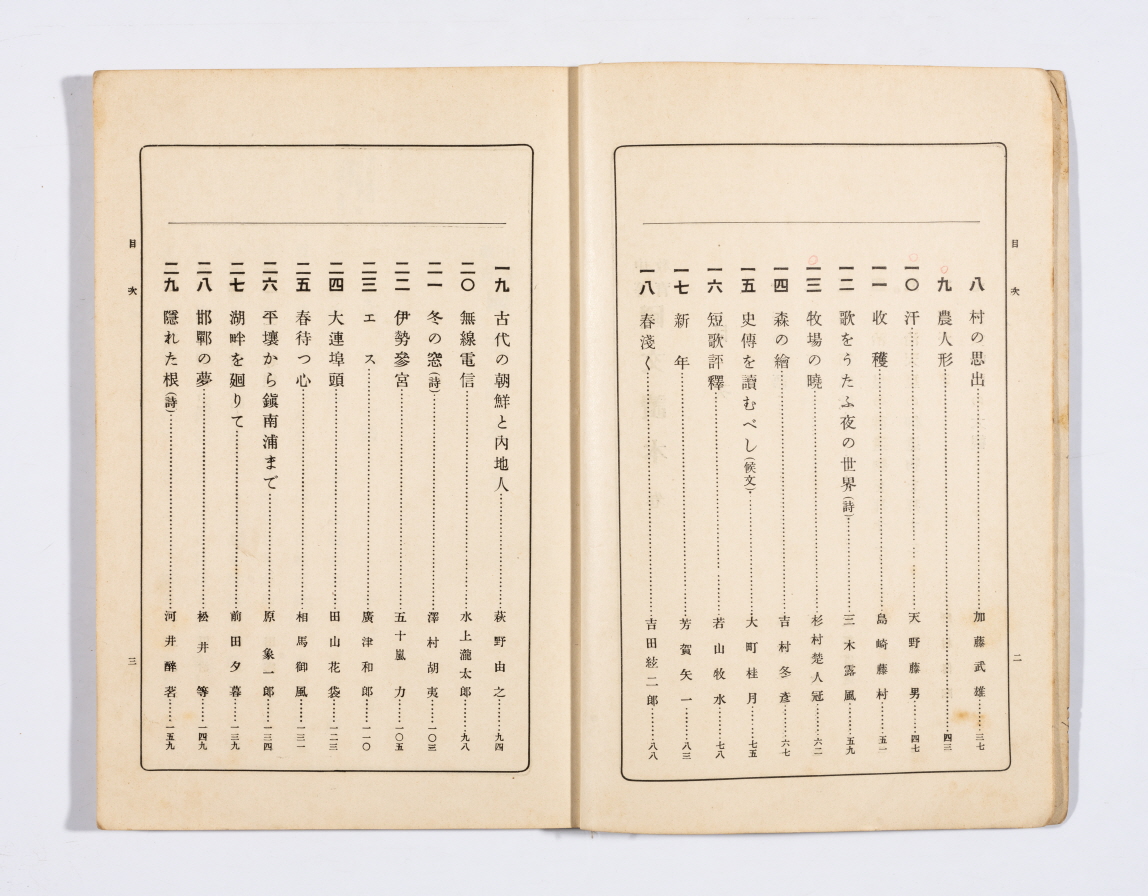 目次
二
八 村の思出 加藤武雄 三七
九 農人形 四三
一〇 汗 天野藤男 四七
一一 收穫 島崎藤村 五一
一二 歌をうたふ夜の世界(詩) 三木露風 五九
一三 牧場の曉 杉村楚人冠 六二
一四 森の繪 吉村冬彥 六七
一五 史傳を讀むべし(候文) 大町桂月 七五
一六 短歌評釋 若山牧水 七八
一七 新年 芳賀矢一 八三
一八 春淺く 吉田絃二郎 八八
一九 古代の朝鮮と內地人 萩野由之 九四
二〇 無線電信 水上瀧太郎 九八
二一 冬の窓(詩) 澤村胡夷 一〇三
二二 伊勢參宮 五十嵐力 一〇五
二三 エス 廣津和郎 一一〇
二四 大連埠頭 田山花袋 一二三
二五 春待つ心 相馬御風 一三一
二六 平壤から鎭南浦まで 原象一郎 一三四
二七 湖畔を廻りて 前田夕暮 一三九
二八 邯鄲の夢 松井等 一四九
二九 隱れた根(詩) 河井醉茗 一五九
目次
三